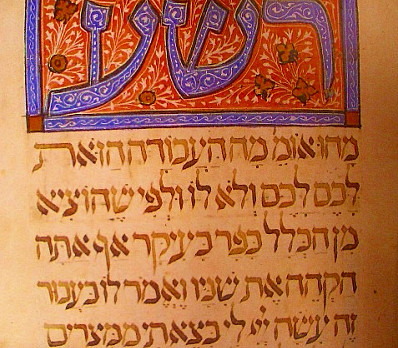 רשע
מהו אומ מה העבודה הזאת
לכם לכם ולא לו ולפי שהוציא
מן הכלל כפר בעיקר אף אתה
הקהה את שניו ואמר לו בעבור
זה עשה ייי לי בצאתי ממצרים